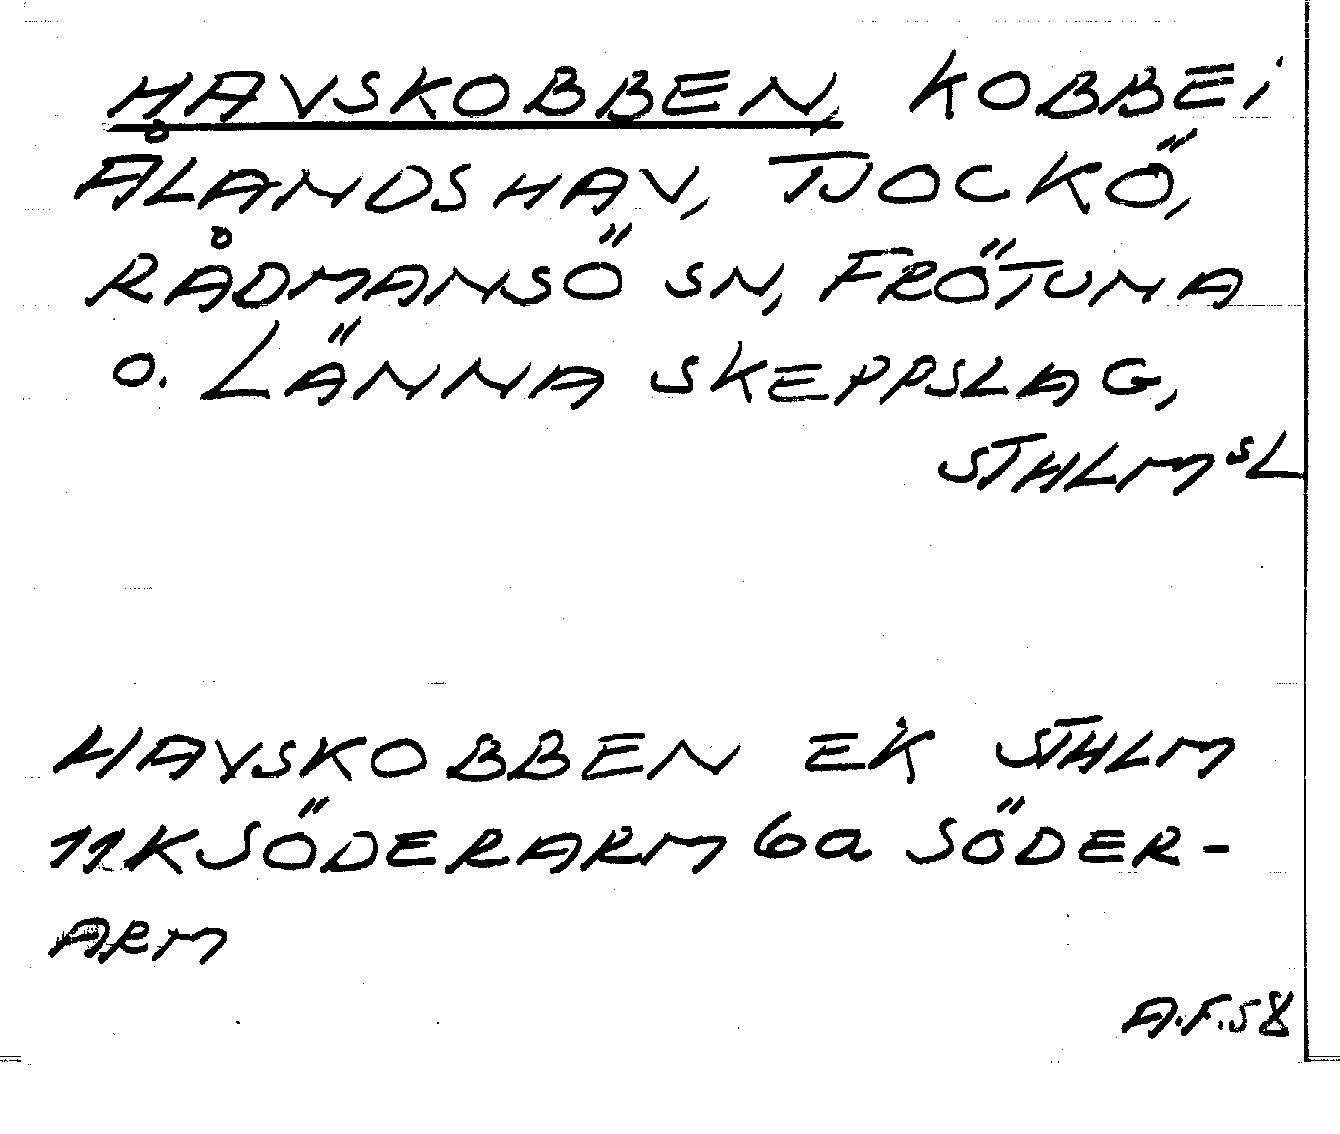 HAVSKOBBEN, KOBBE i
ÅLANDSHAV, TJOCKÖ,
RÅDMANSÖ SN, FRÖTUNA
O. LÄNNA SKEPPSLAG,
STHLM SL
HAVSKOBBEN EK STHLM
11K SÖDERARM 6a SÖDER-
ARM
A.F.58